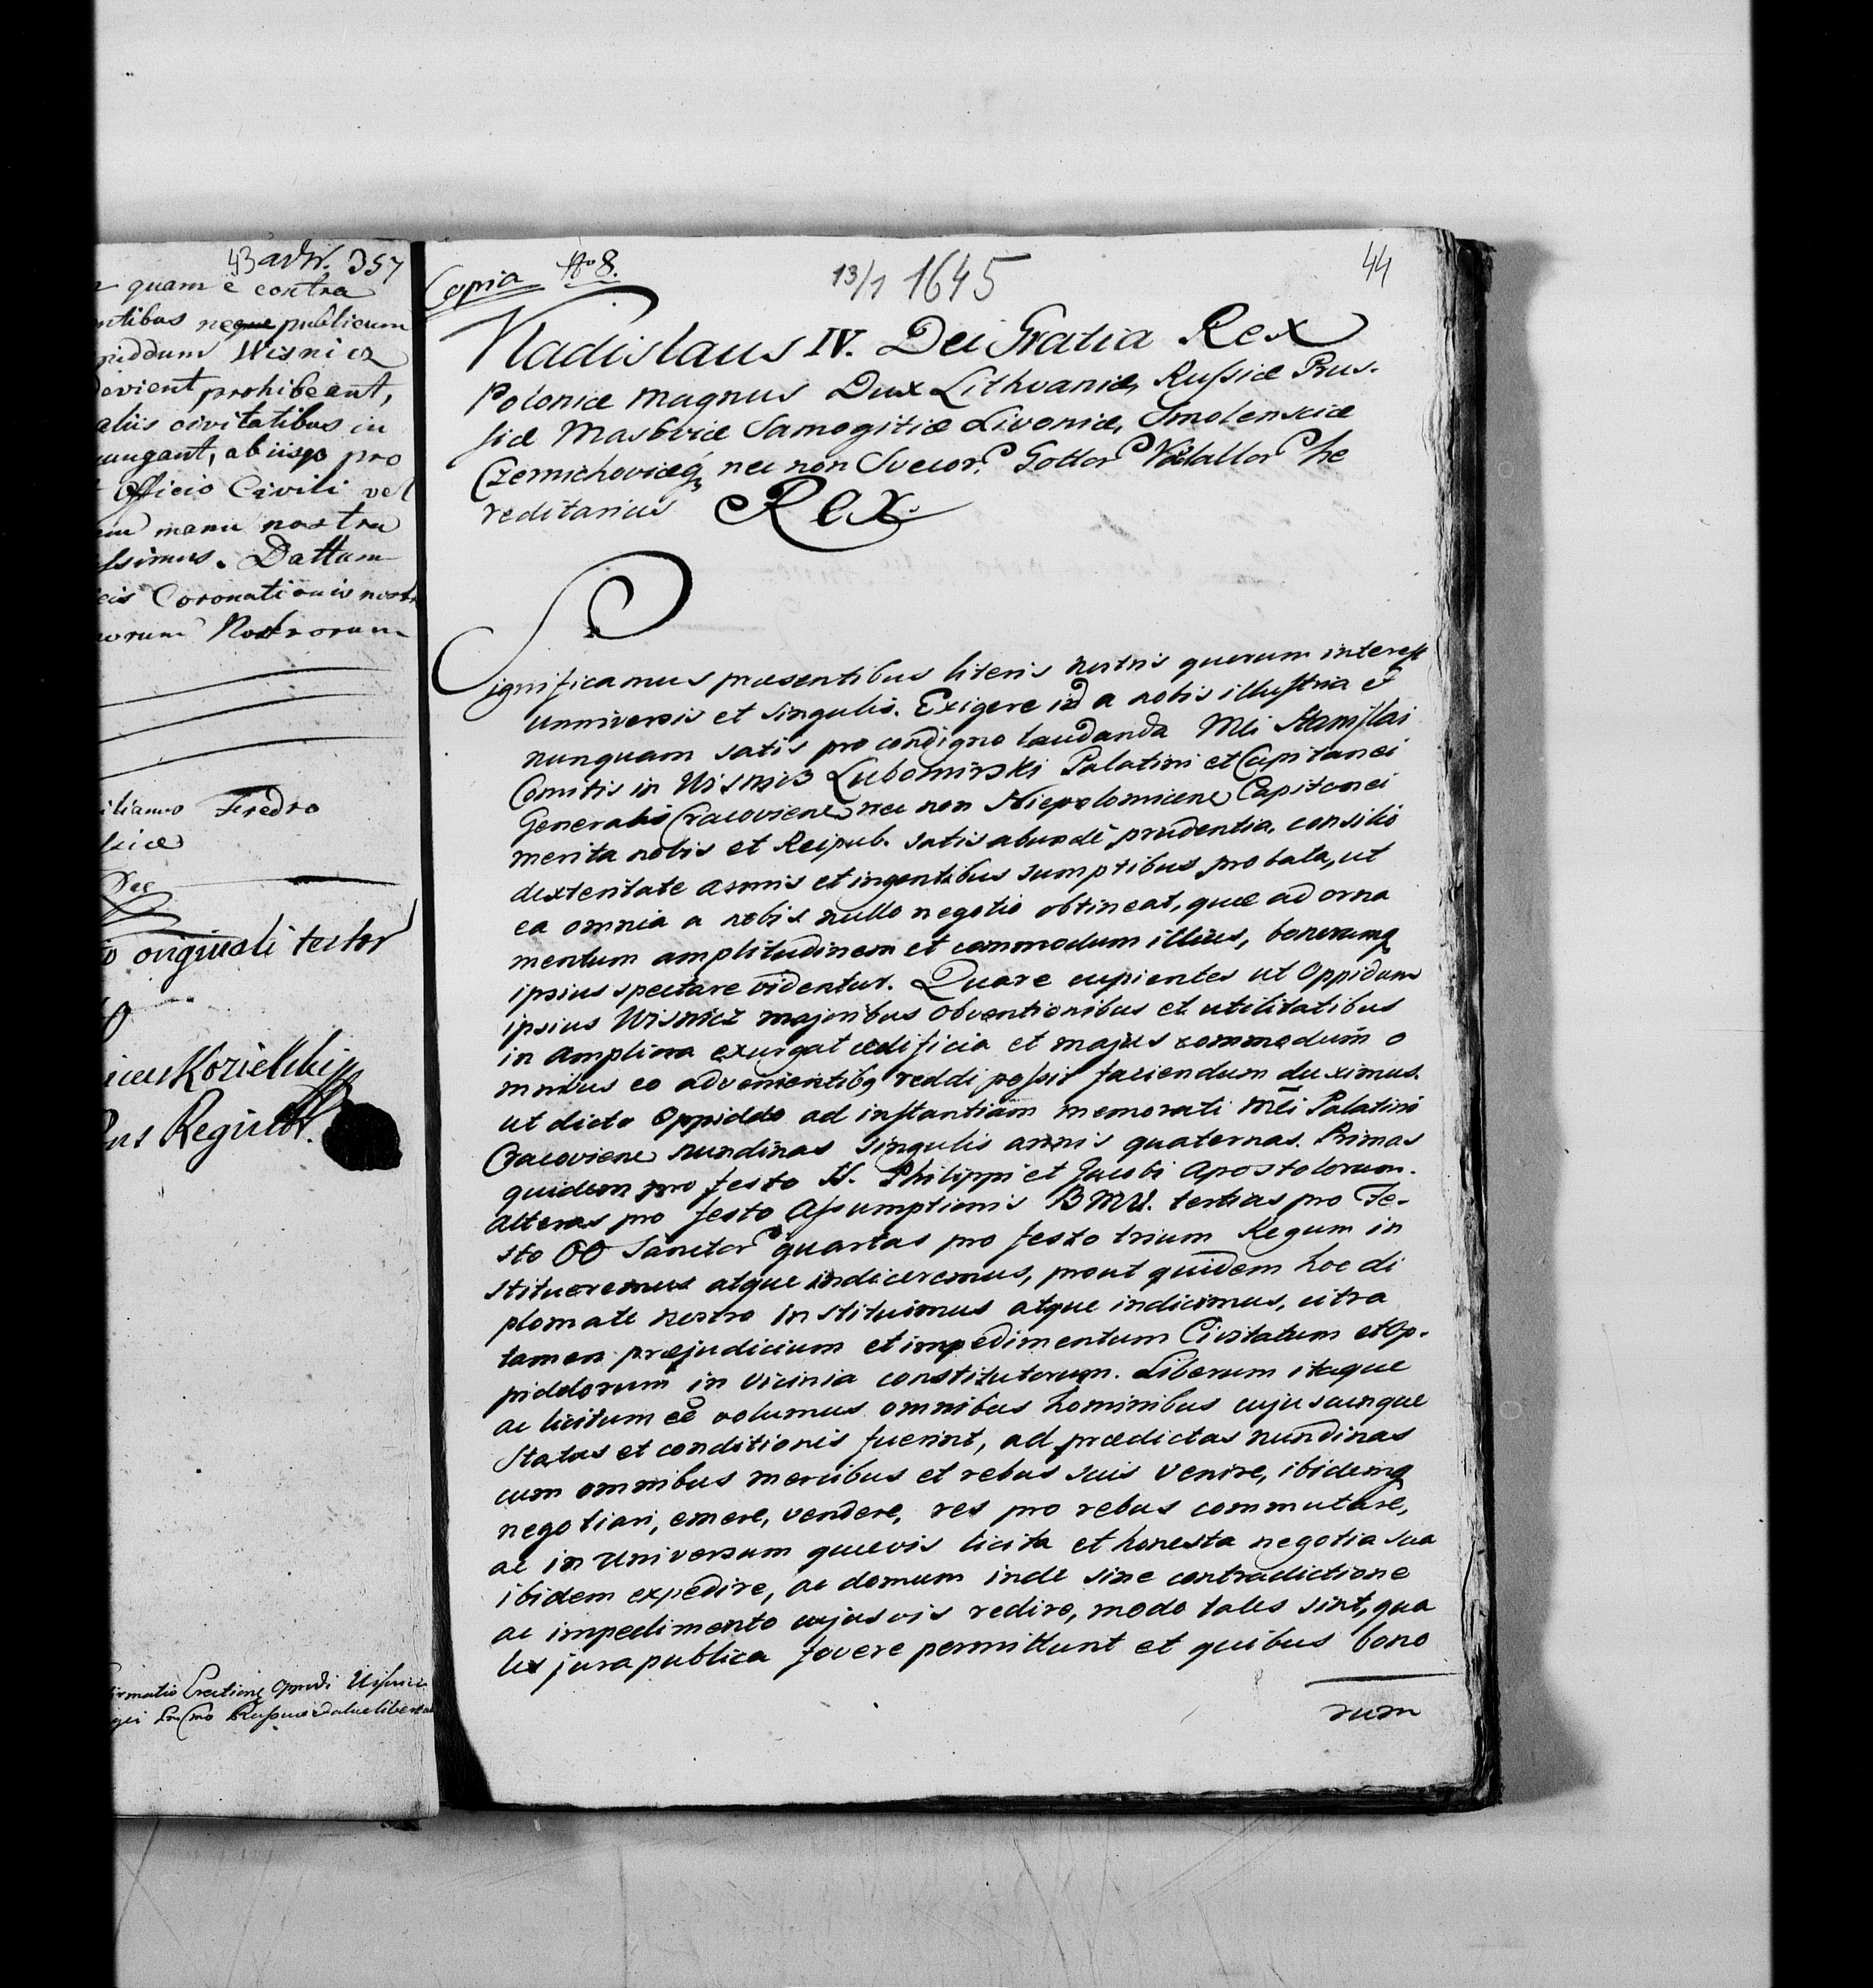 43 adN. 357
quam e contra
ntibus neque publicum
piddum Wisnicz
devient prohibeant,
aliis civitatibus in
ungant, ab iisqз pro
Officio Civili vel
manu nostra
ssimus. Dattum
eis Coronationis nostr
norum Nostrorum
ilianus Fredro
originali testor
Kozielski
Regius
Copia No 8.
13/1 1645
44
Vladislaus IV. Dei Gratia Rex
Poloniæ Magnus Dux Lithvaniæ, Russiæ Prus-
siæ Masoviæ Samogitiæ Livoniæ, Smolensciæ
Czernichoviæq nec non Svecor. Gottor Vadallor he
reditarius Rex.
Significamus præsentibus literis nostris quorum interest
unniversis et singulis. Exigere id a nobis illustria et
nunquam satis pro condigno laudanda Mci Stanislai
Comitis in Wisnicz Lubomirski Palatini et Capitanei
Generalis Cracoviene nec non Niepolomicene Capitanei
merita nobis et Reipub. satis abunde prudentia, consilio
dexteritate armis et ingentibus sumptibus probata, ut
ea omnia a nobis nullo negotio obtineat, quæ ad orna
mentum amplitudinem et commodum illius, bonorumq
ipsius spectare videntur. Quare cupientes ut Oppidum
ipsius Wisnicz majoribus obventionibus et utilitatibus
in ampliora exurgat ædificia et majus commodum o
mnibus eo advenientibq reddi possit faciendum duximus.
ut dicto Oppiddo ad instantiam memorati Mci Palatini
Cracoviene nundinas singulis annis quaternas. Primas
quidem pro festo SS. Philippi et Jacobi Apostolorum.
alteras pro festo Assumptionis BMV. tertias pro Fe-
sto OO Sanctor quartas pro festo trium Regum in
stitueremus atque indiceremus, prout quidem hoc di
plomate nostro instituimus atque indicimus, citra
tamen præjudicium et impedimentum Civitatum et Op-
piddorum in vicinia constitutorum. Liberum itaque
ac licitum eē volumus omnibus hominibus cujuscunque
Status et conditionis fuerint, ad prædictas nundinas
cum omnibus mercibus et rebus suis venire, ibidemq
negotiari, emere, vendere, res pro rebus commutare,
ac in universum quævis licita et honesta negotia sua
ibidem expedire, ac domum inde sine contradictione
ac impedimento cujusvis redire, modo tales sint, qua
les jura publica fovere permittunt et quibus bono
rum